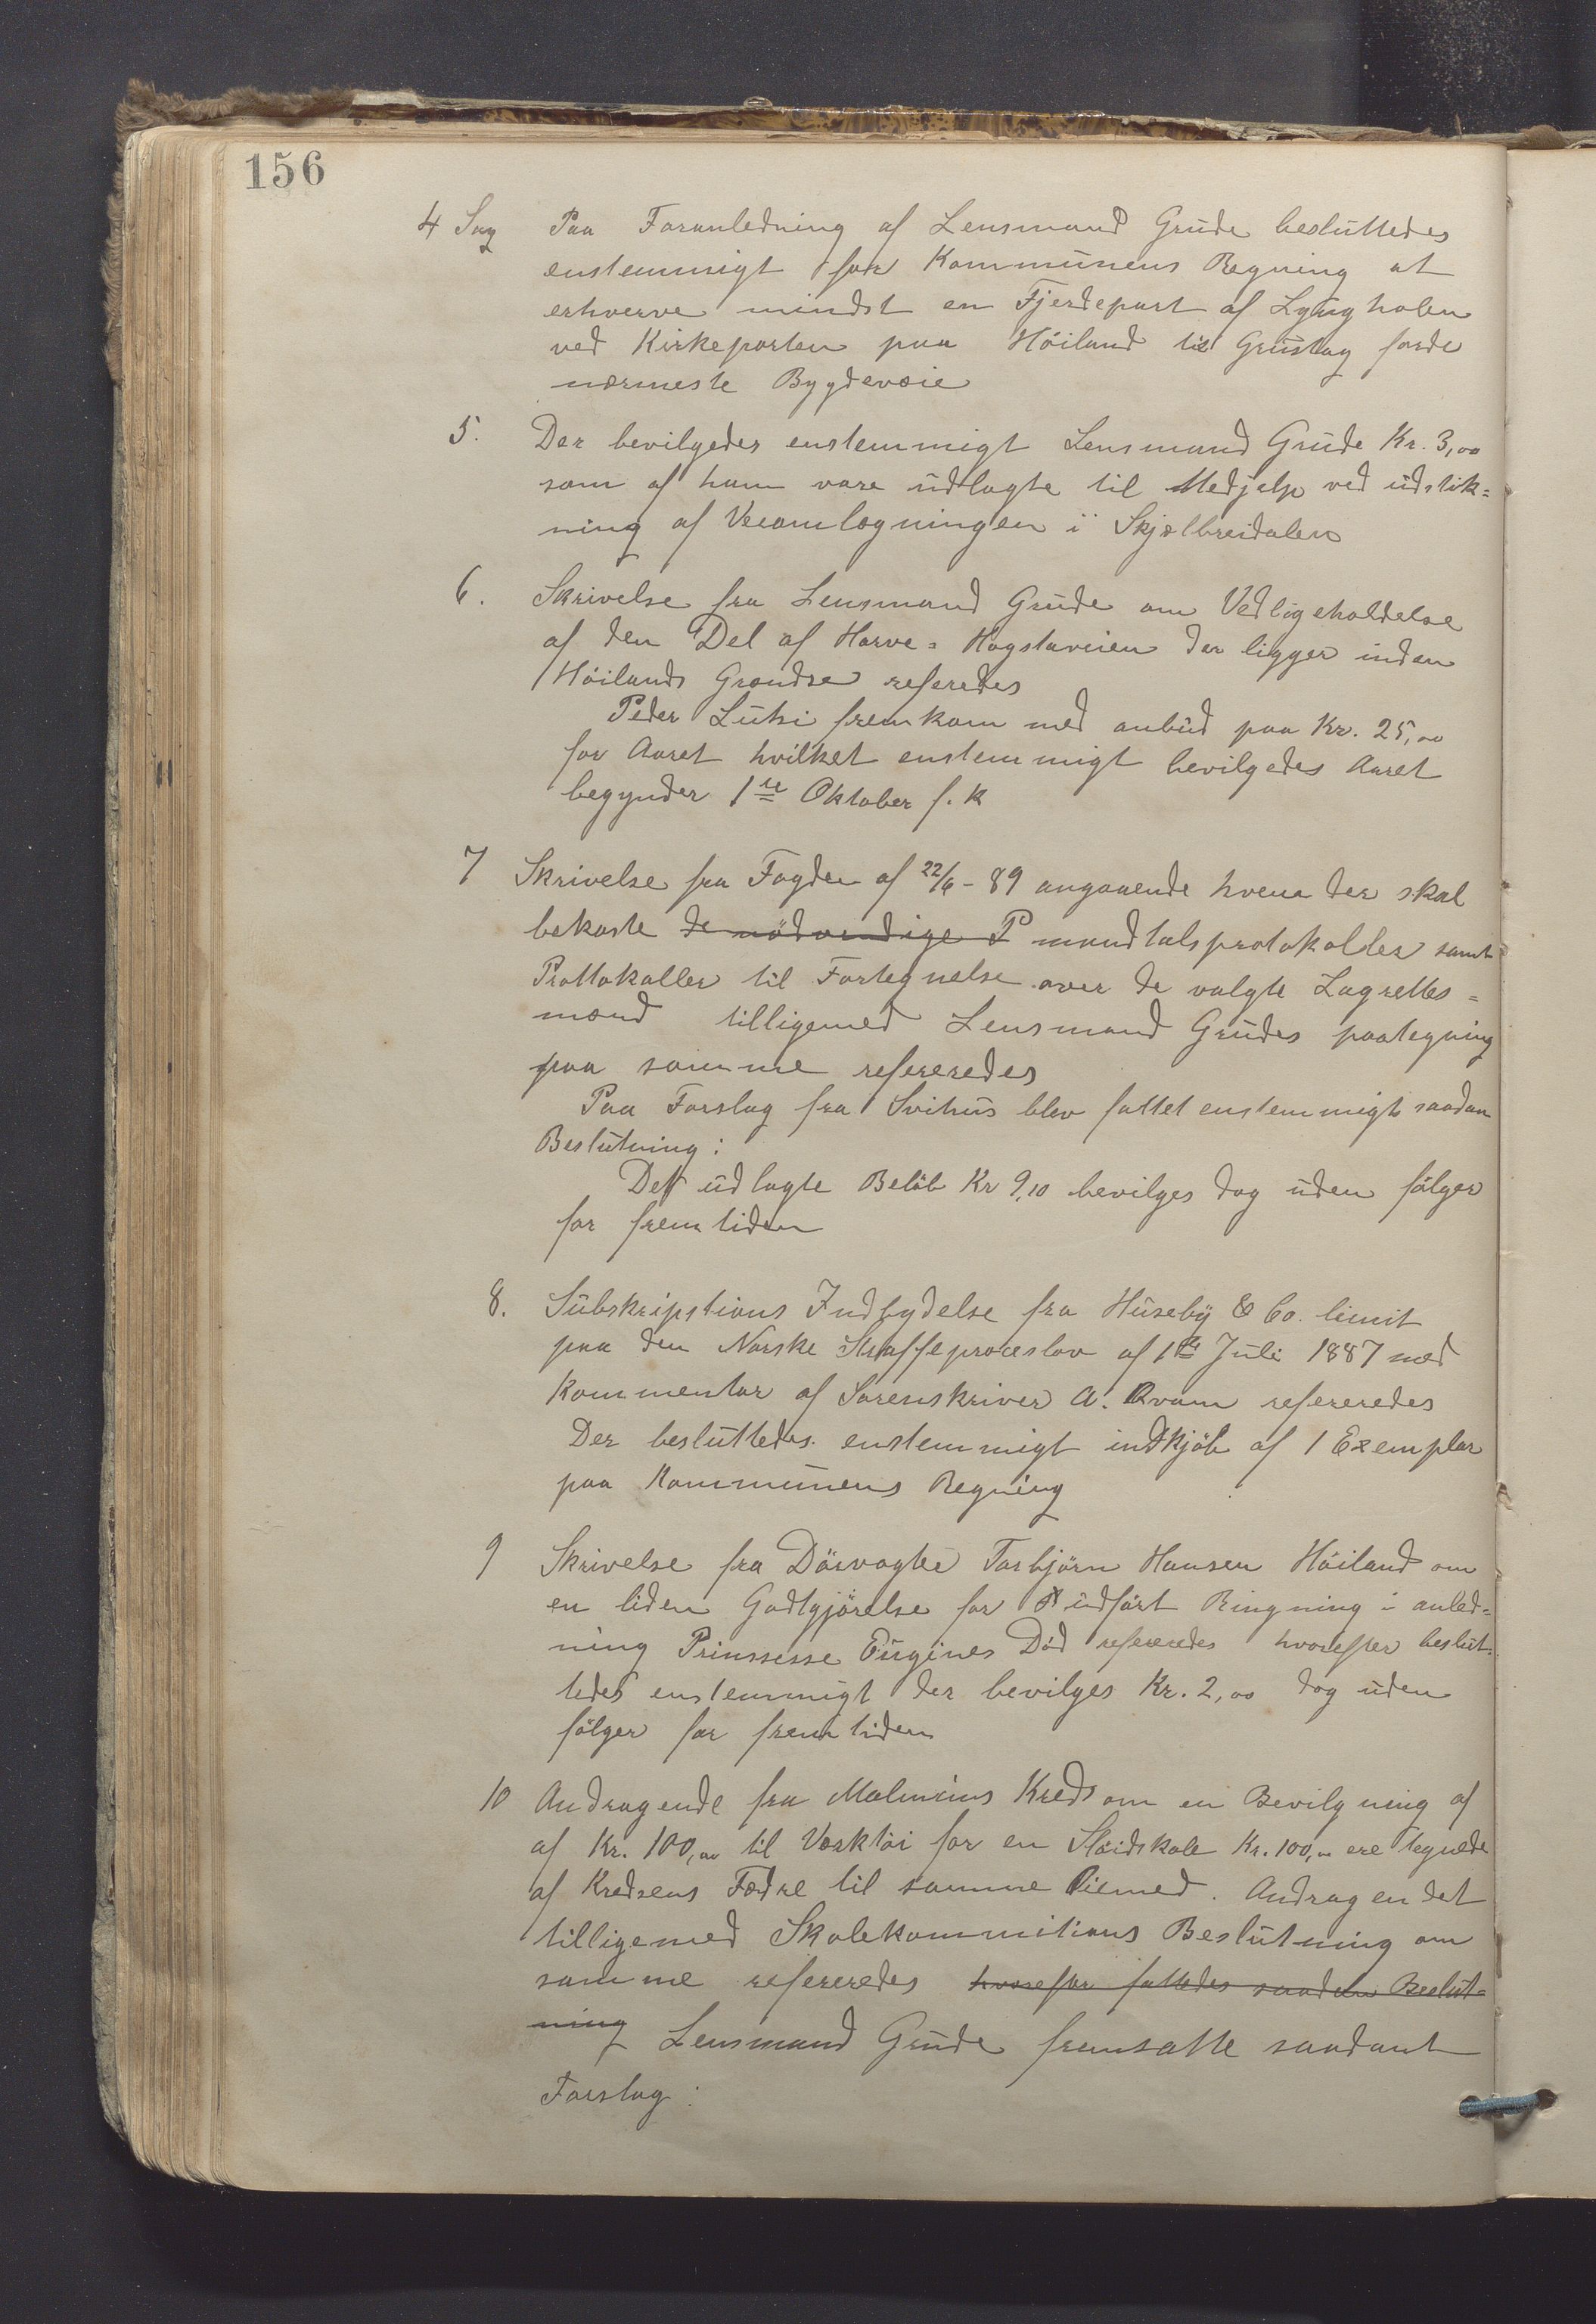 156
4 Sag Paa Foranledning af Lensmand Grude besluttedes
enstemmigt for Kommunens Regning at
erhverve mindst en Fjerdepart af Lyngholen
ved Kirkeporten paa Höiland til Grustag forde
nærmeste Bygdeveie
5. Der bevilgedes enstemmigt Lensmand Grude Kr. 3,00
som af ham vare udlagte til Medjelp ved udstik=
ning af Veiomlægningen i Skjelbreidalen
6. Skrivelse fra Lensmand Grude om Vedligeholdelse
af den Del af Horve=Hogstaveien der ligger inden
Höilands Grændse referedes
Peder Lutsi fremkom med anbud paa Kr. 25,00
for Aaret hvilket enstemmigt bevilgedes Aaret
begynder 1ste Oktober f. k
7 Skrivelse fra Fogden af 22/6-89 angaaende hvem der skal
bekoste de nödvendige P mandtalsprotokoller samt
Prottokoller til Fortegnelse over de valgte Lagrettes=
mænd tilligemed Lensmand Grudes paategning
paa samme refereredes
Paa Forslag fra Svihus blev fattet enstemmigt saadan
Beslutning:
Det udlagte Belöb Kr 9,10 bevilges dog uden fölger
for fremtiden
8. Subskripstions Indbydelse fra Huseby & Co. limit
paa den Norske Straffeproceslov af 1ste Juli 1887 med
Kommentar af Sorenskriver A. Qvam refereredes
Der besluttedes enstemmigt indkjöb af 1 Exemplar
paa Kommunens Regning
9 Skrivelse fra Dörvogter Torbjörn Hansen Höiland om
en liden Godtgjörelse for udfört Ringning i anled=
ning Prinssesse Eugines Död refereredes hvorefter beslut=
tedes enstemmigt der bevilges Kr. 2,00 dog uden
fölger for fremtiden
10 Andragende fra Malmins Kreds om en Bevilgning af
af Kr. 100,00 til Værktöi for en Slöidskole Kr. 100,00 ere tegnede
af Kredsens Fædre til samme Öiemed. Andragendet
tilligemed Skolekommitions Beslutning om
samme refereredes hvorefter fattedes saadan Beslut=
ning Lensmand Grude fremsatte saadant
Forslag: